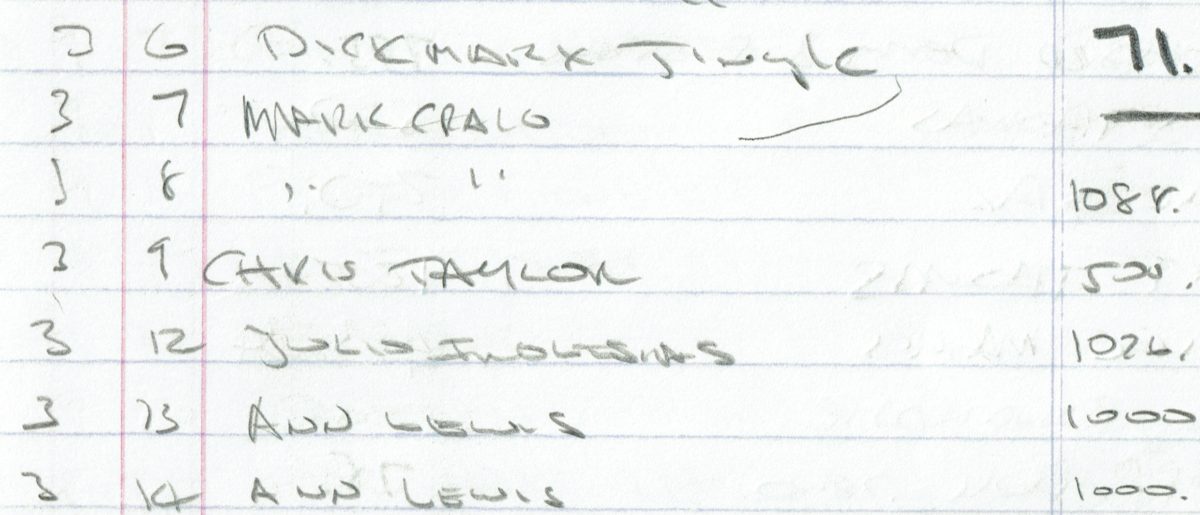 3 6 DICKMARX Jingle 71.
3 7 MARK CRAIG
3 8 " " 1088.
3 9 CHRIS TAYLOR 500.
3 12 JULIO INGLESIAS 1026.
3 13 ANN LEWIS 1000
3 14 ANN LEWIS 1000.